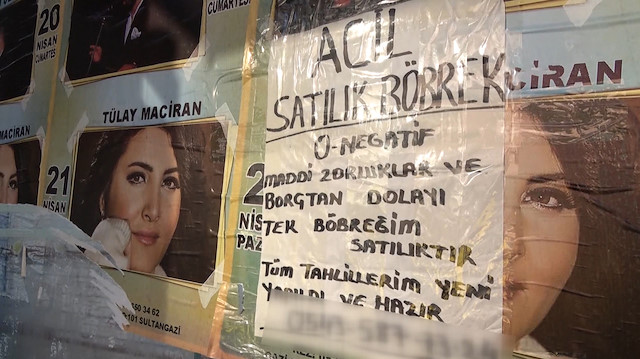 20
NİSAN
CUMARTESİ
CUMARTESİ
TÜLAY MACİRAN
MACİRAN
21
NİSAN
PAZAR
550 34 62
101 SULTANGAZİ
2
NİS
PAZ
CİRAN
ACİL
SATILIK BÖBREK
0-NEGATİF
MADDİ ZORLUKLAR VE
BORÇTAN DOLAYI
TEK BÖBREĞİM
SATILIKTIR
TÜM TAHLİLLERİM YENİ
YAPILDI VE HAZIR